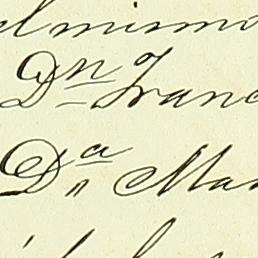 el mismo
Dn Franc
Da Mar